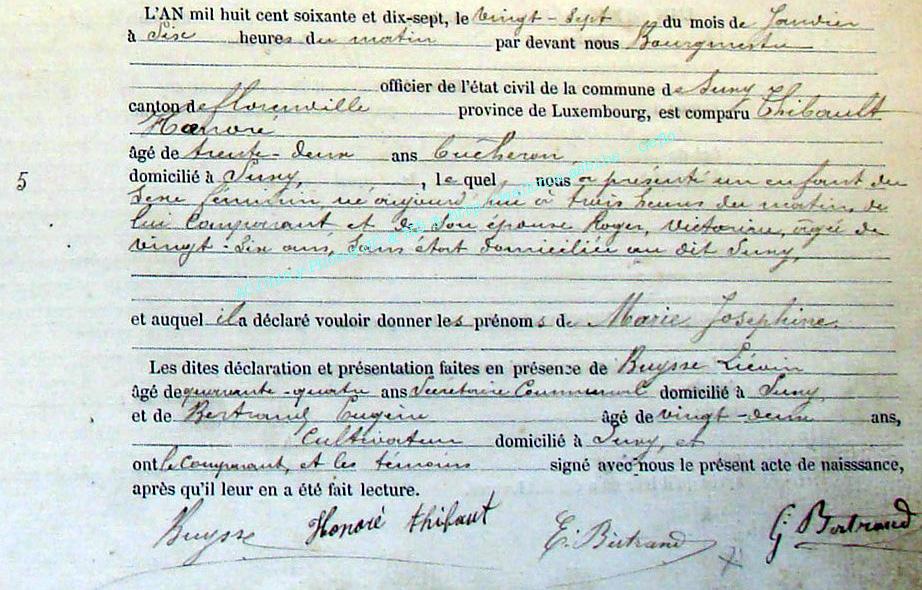 L'AN mil huit cent soixante et dix-sept, le vingt-sept du mois de Janvier
à Six heures du matin par devant nous Bourgmestre
officier de l'état civil de la commune de Suny
canton de florenville province de Luxembourg, est comparu Thibault
Honoré
âgé de trente-deux ans Bucheron,
domicilié à Suny, , le quel, nous a présenté un enfant du
5
Sexe féminin, né aujourd'hui à trois heures du matin, de
lui Comparant et de Son épouse Roger, Victorine, âgée de
vingt-Six ans, Sans état domiciliée au dit Suny,
et auquel il a déclaré vouloir donner les prénoms de Marie Joséphine.
Les dites déclaration et présentation faites en présence de Buysse Liévin
âgé de quarante-quatre ans Secrétaire Communal domicilié à Suny
et de Bertrand Eugène âgé de vingt-deux ans,
Cultivateur domicilié à Suny, et
ont le Comparant, et les témoins signé avec nous le présent acte de naisssance,
après qu'il leur en a été fait lecture.
Buysse Honoré thibaut E. Bertrand G Bertrand